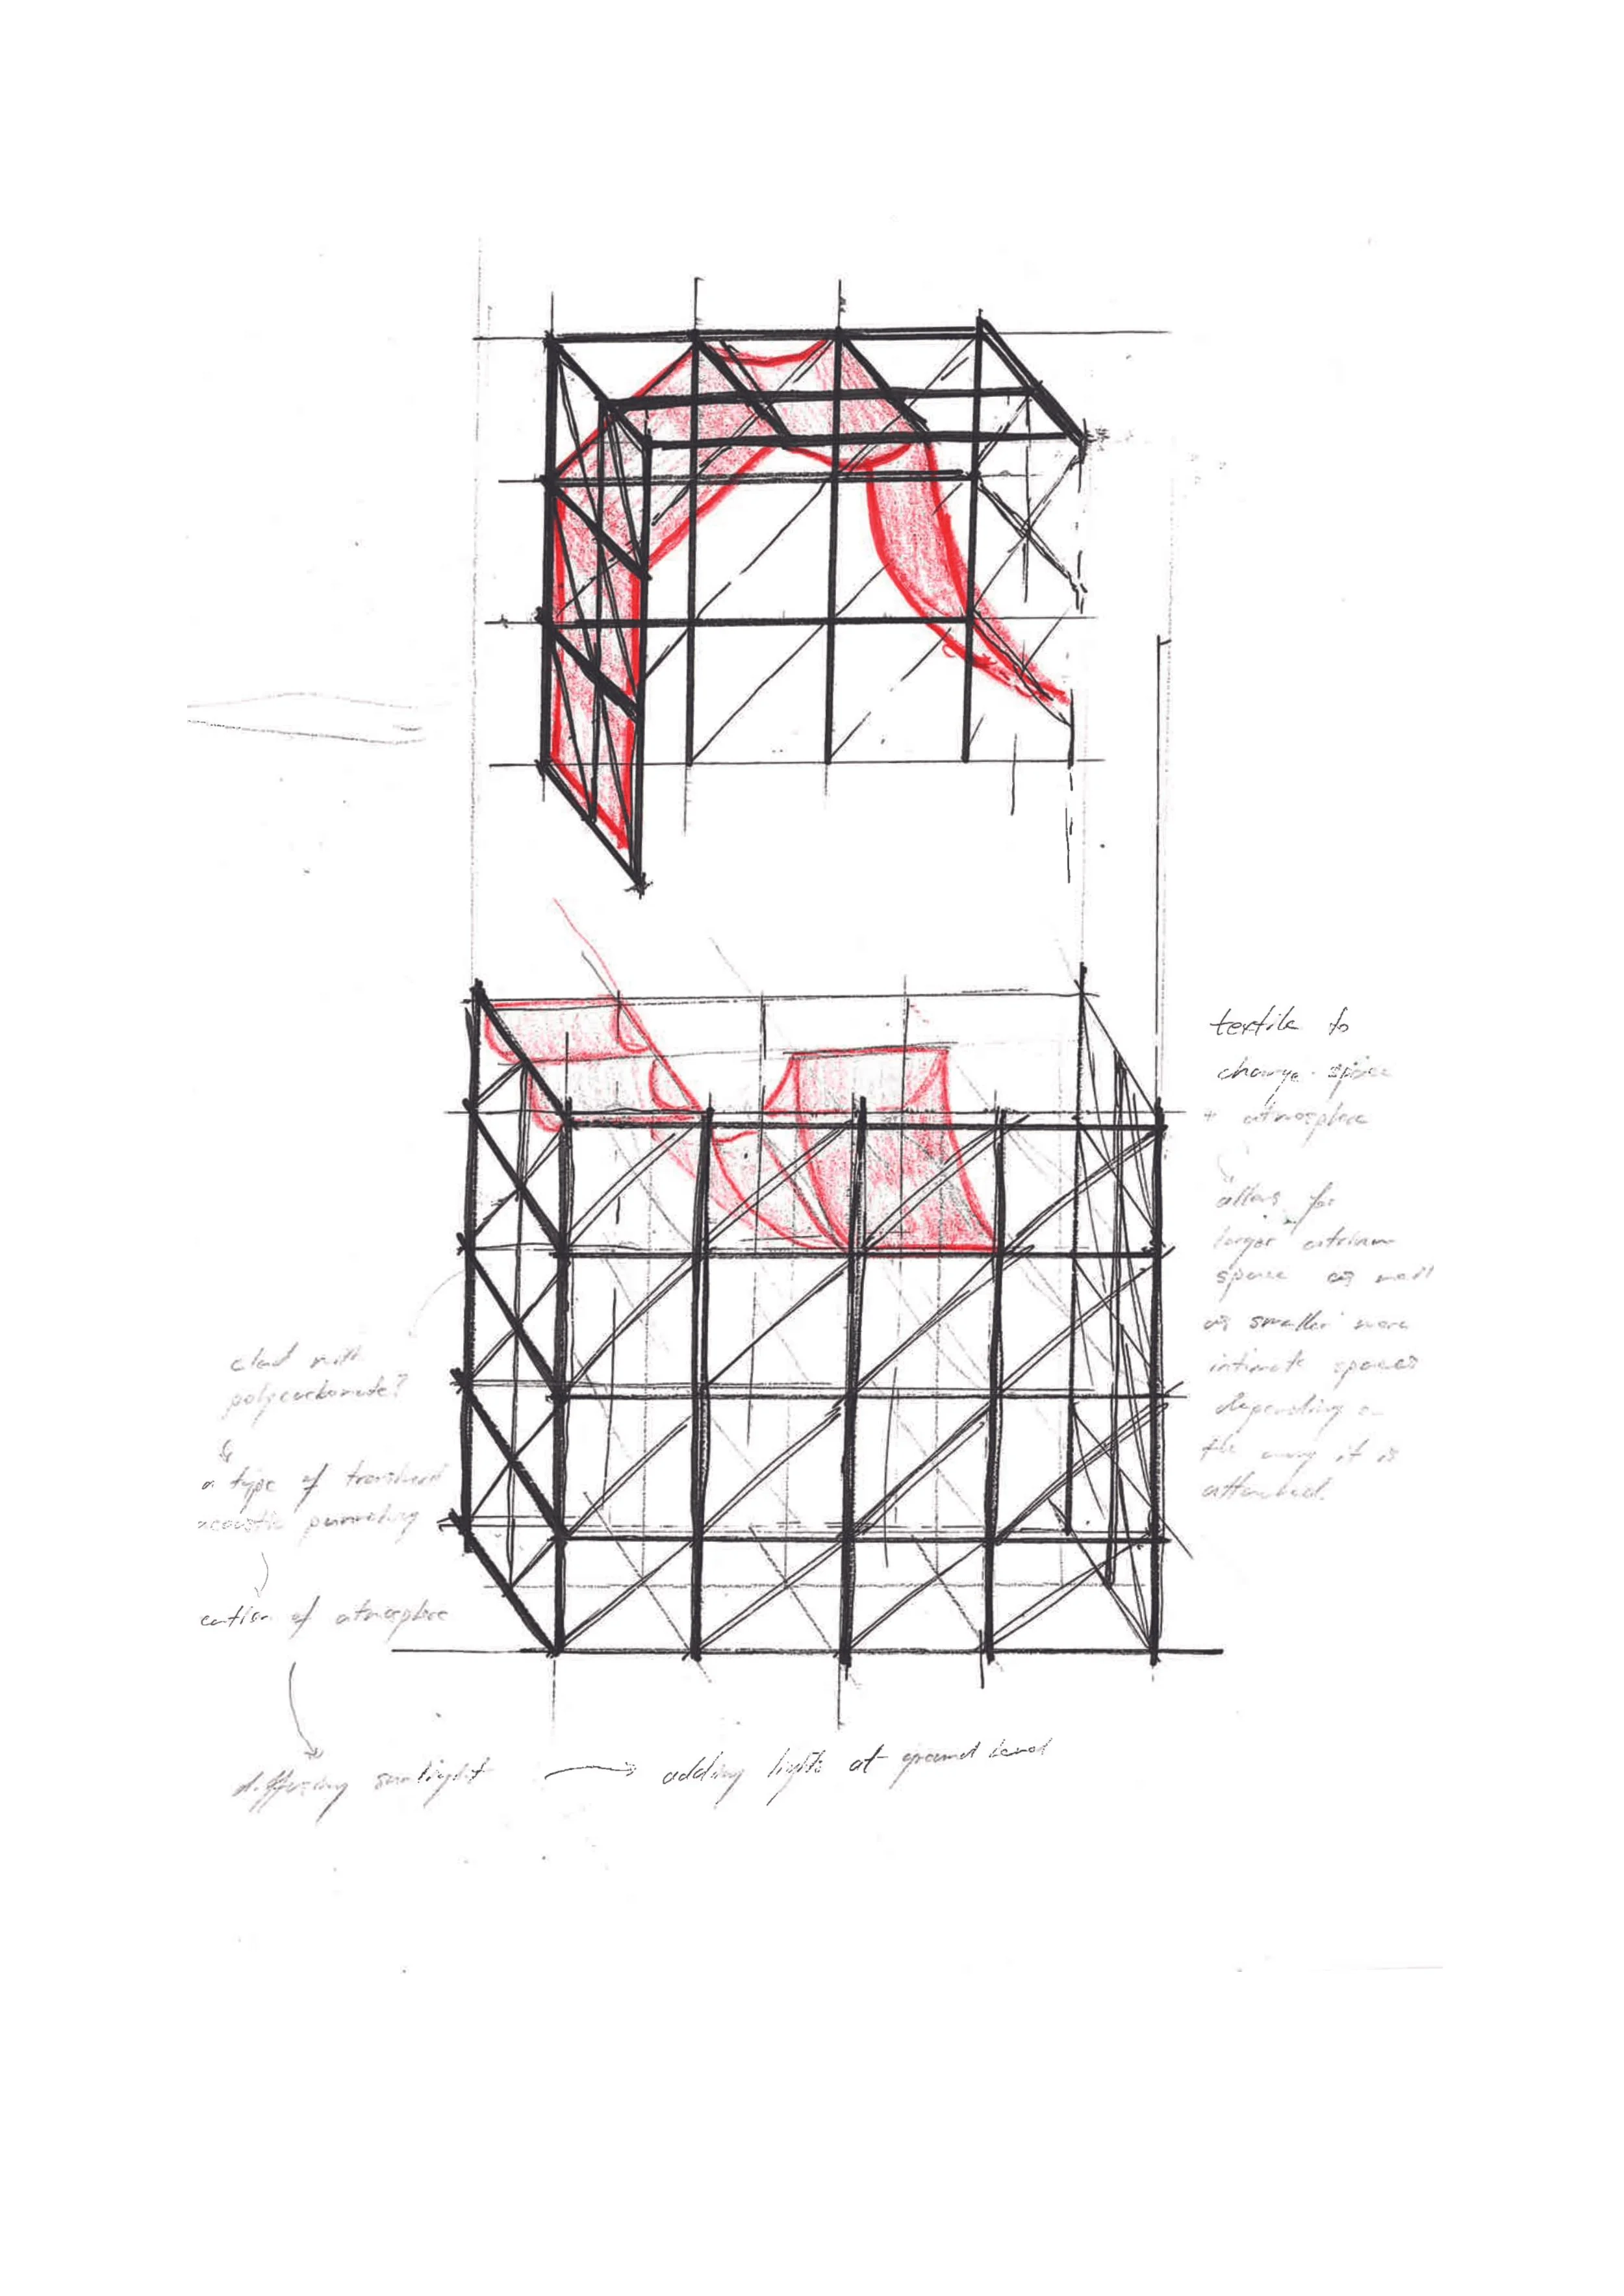 textile to
change space
+ atmosphere
allows for
larger atrium
space as well
as smaller more
intimate spaces
depending on
the way it is
attached.
clad with
polycarbonate?
a type of translucent
acoustic panneling
of atmosphere
diffusing sunlight → adding lights at ground level